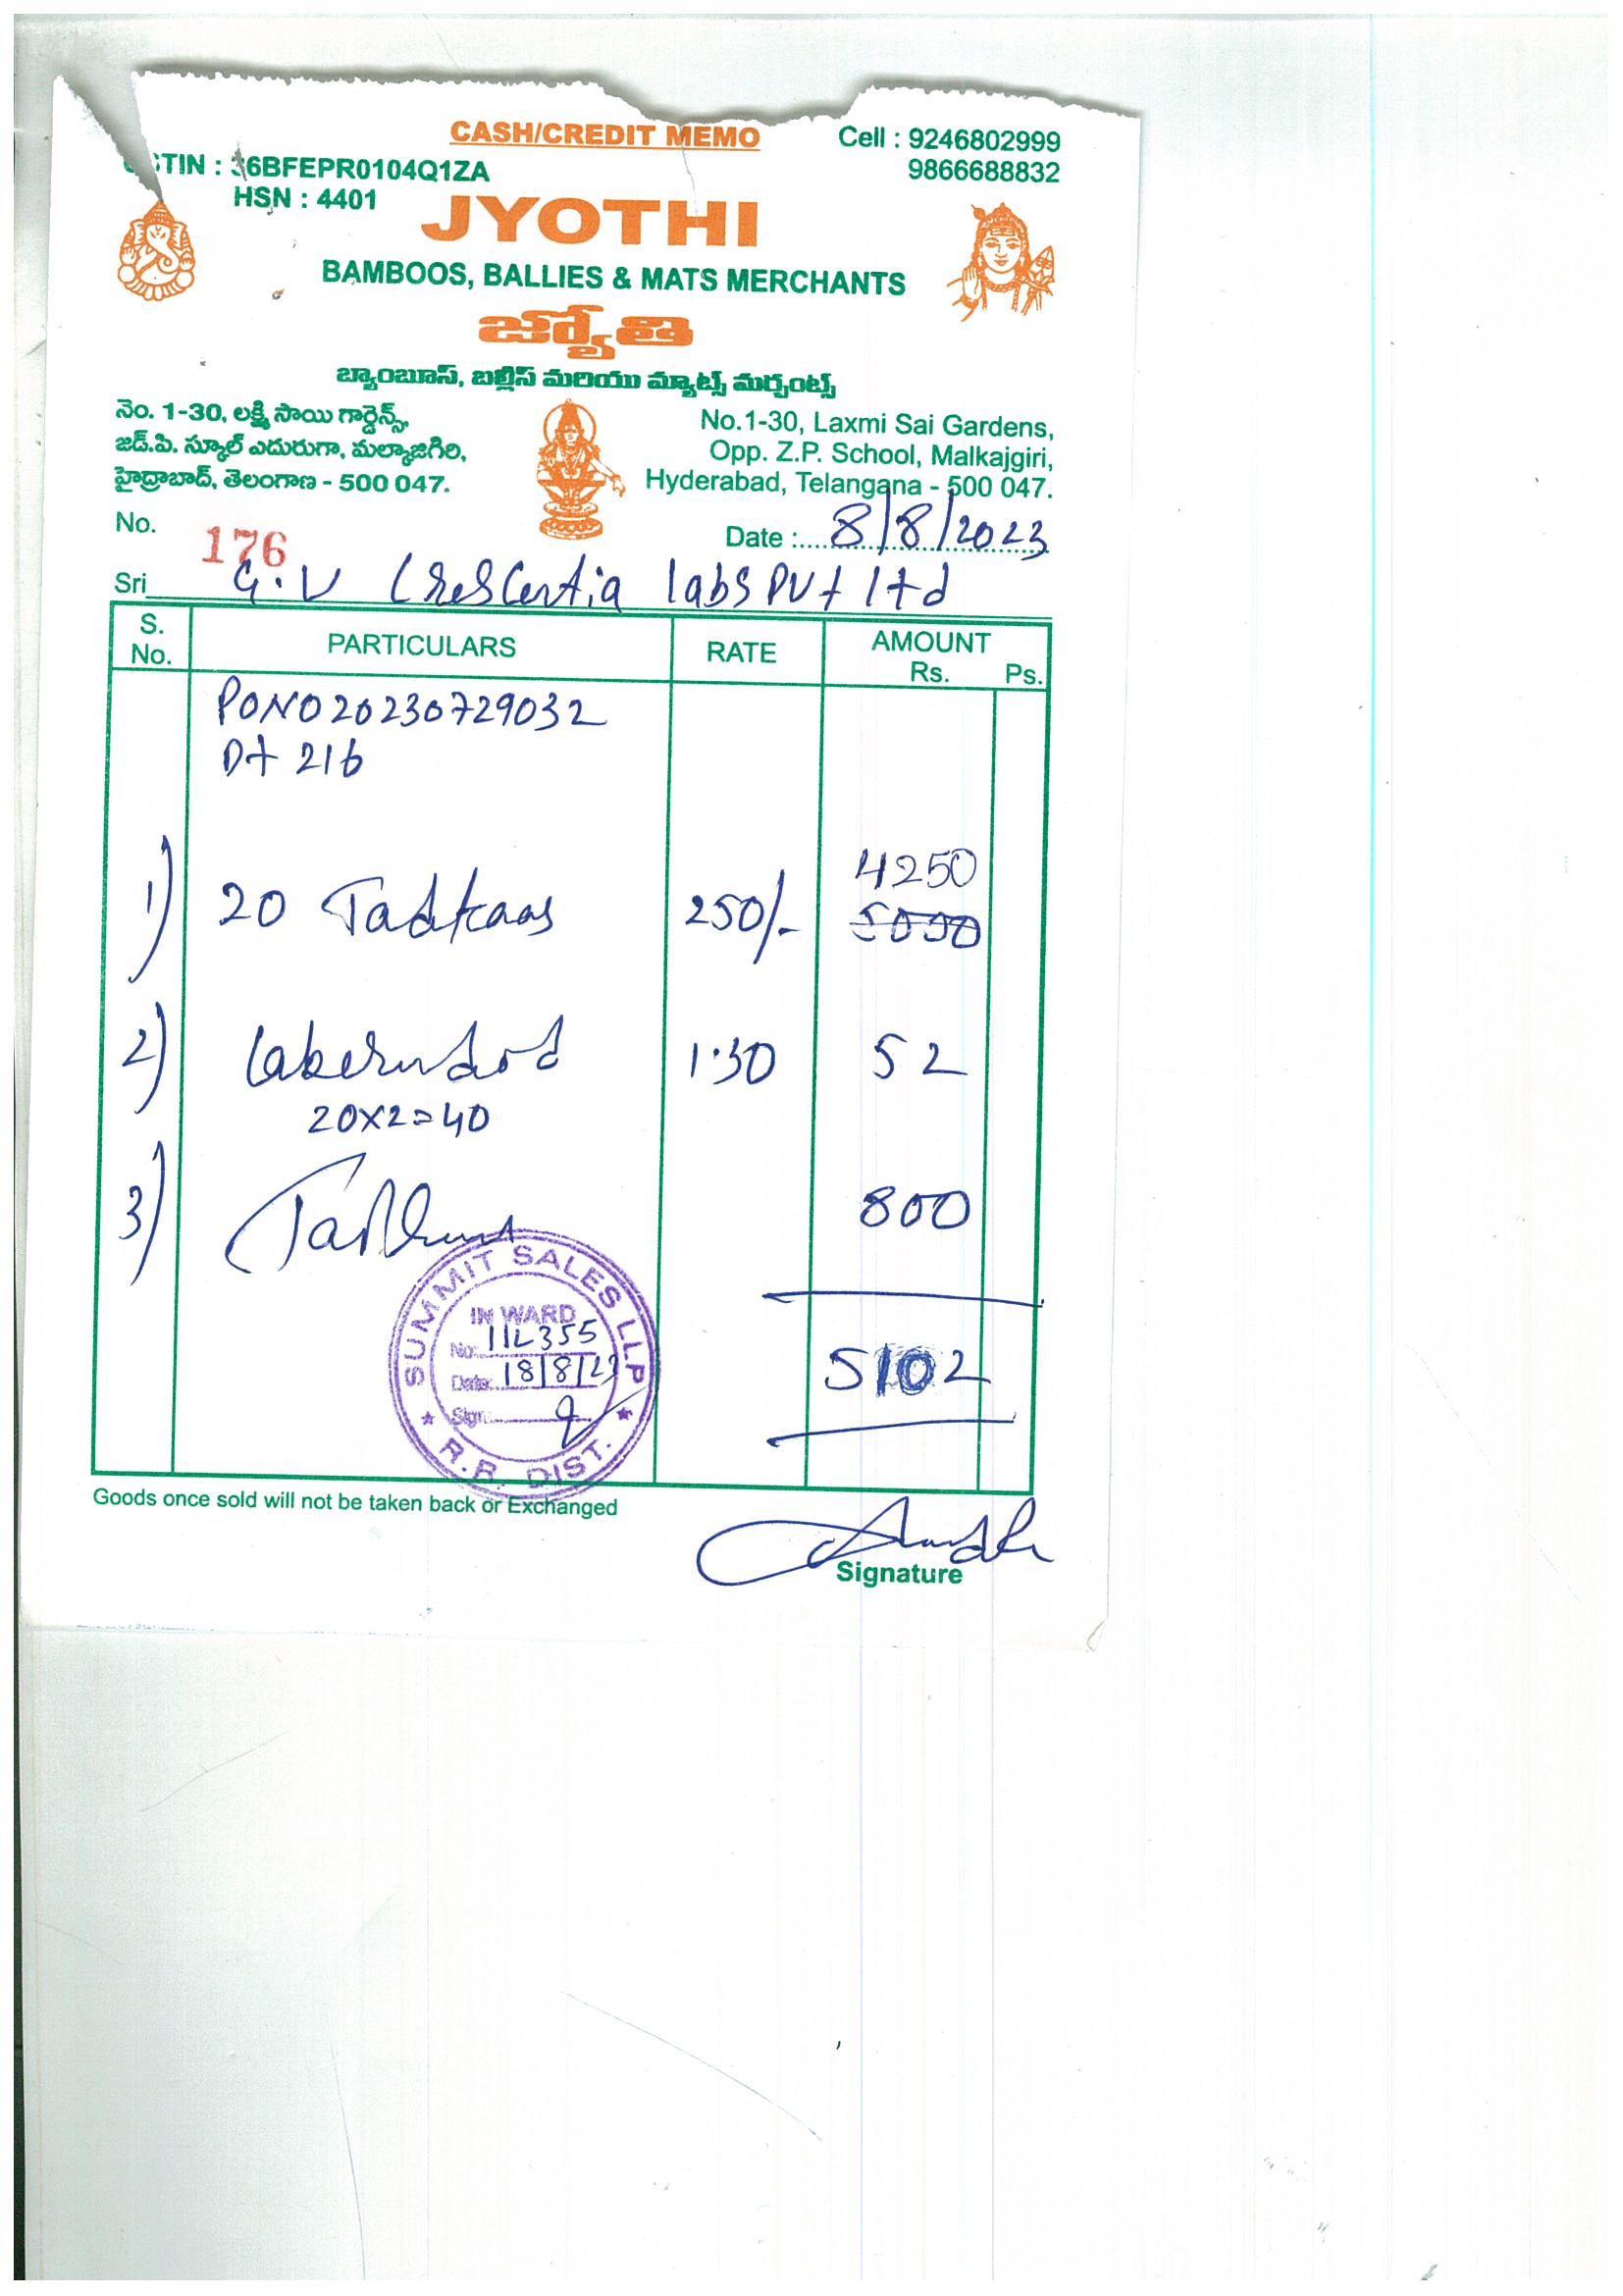 CASH/CREDIT MEMO
Cell : 9246802999
9866688832
GSTIN : 36BFEPR0104Q1ZA
HSN : 4401
JYOTHI
BAMBOOS, BALLIES & MATS MERCHANTS
జ్యోతి
బ్యాంబూస్, బల్లీస్ మరియు మ్యాట్స్ మర్చంట్స్
నెం. 1-30, లక్ష్మి సాయి గార్డెన్స్,
జడ్.పి. స్కూల్ ఎదురుగా, మల్కాజిగిరి,
హైద్రాబాద్, తెలంగాణ - 500 047.
No.1-30, Laxmi Sai Gardens,
Opp. Z.P. School, Malkajgiri,
Hyderabad, Telangana - 500 047.
No. 176
Date : 8/8/2023
Sri G.V Crescentia labs Pvt ltd
S. No. PARTICULARS RATE AMOUNT Rs. Ps.
PONO 20230729032
Dt 216
4250
1) 20 250/- 5000
2) 1.30 52
20x2=40
3) 800
SUMMIT SALES LLP
IN WARD
No:
Date: 18/8/23
Sign:
R.R. DIST.
5102
Goods once sold will not be taken back or Exchanged
Signature